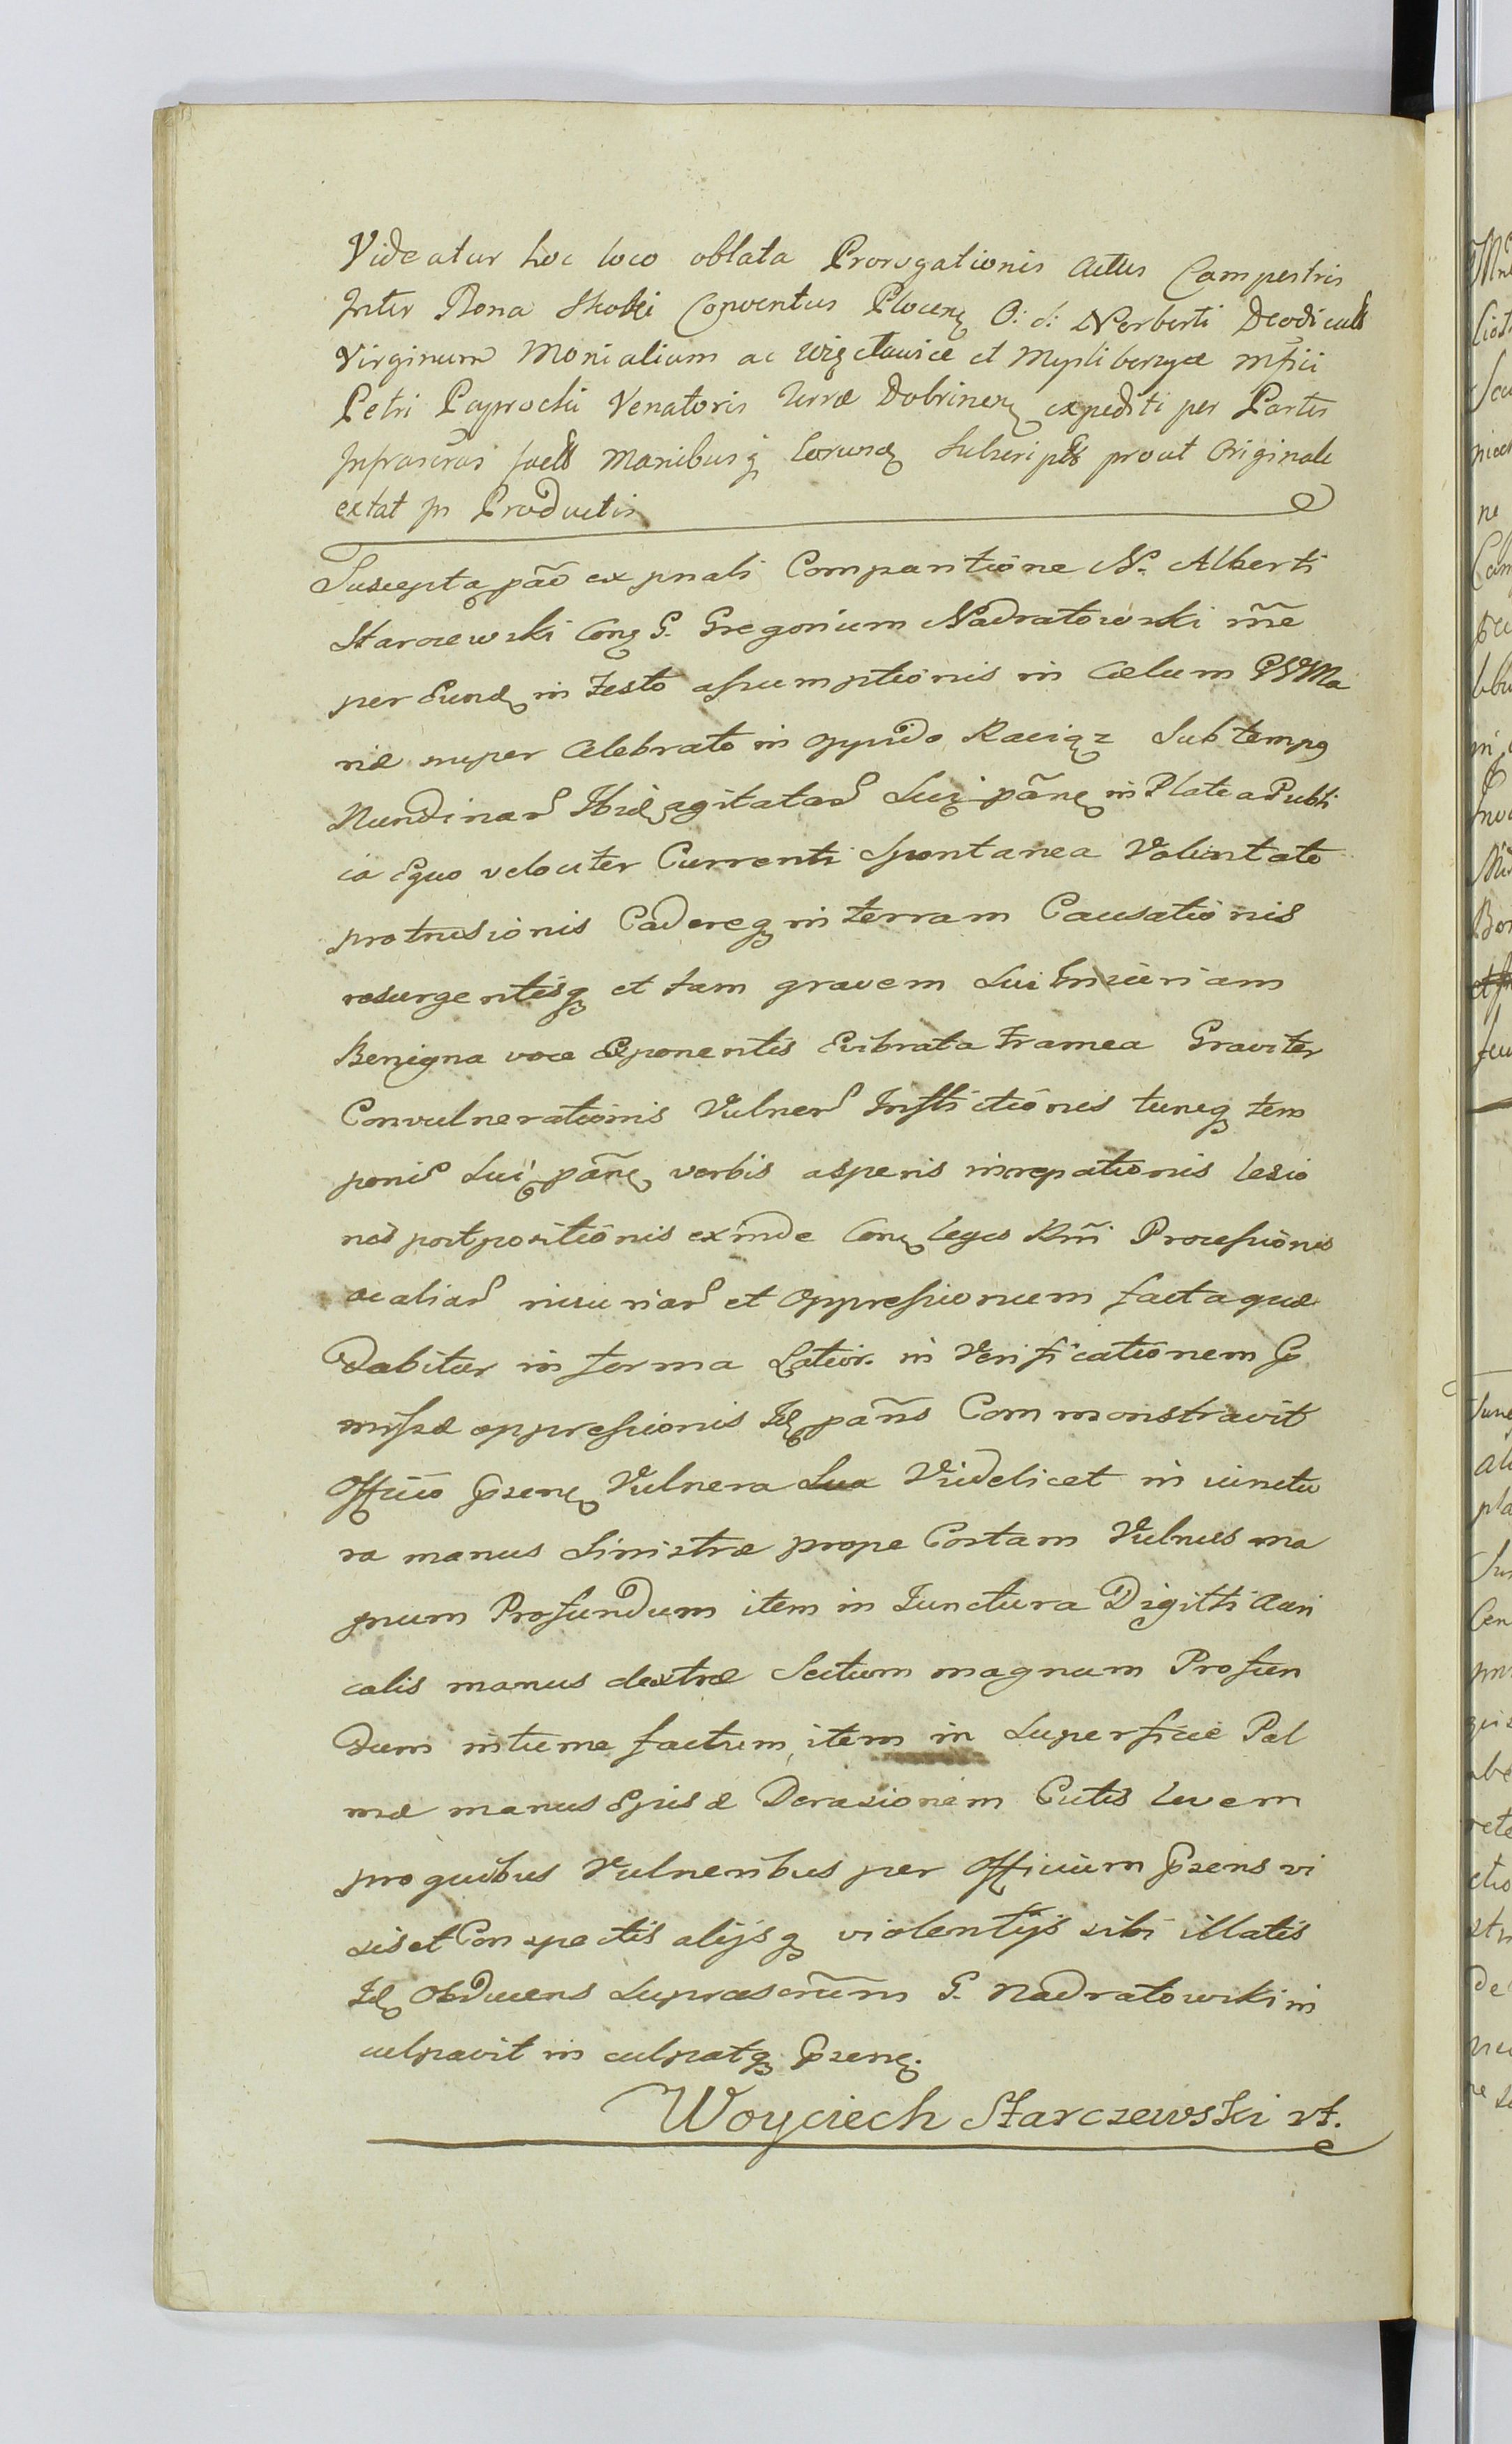 Videatur hoc loco oblata Prorogationis Actus Campestris
Inter Bona Skolki Conventus Plocens O: S: Norberti Deodicatt
Virginum Monialium ac Więcławice et Mysliborzyce Mfici
Petri Paprocki Venatoris Terræ Dobrinens expediti per Partes
Infrascras factt Manibusq Eorund Subscriptt prout Originale
extat in Productis
Suscepta pāo ex pnali Comparitione N. Alberti
Starczewski Con G. Gregorium Nadratowski rãe
per Eund in Festo assumptionis in Cælum BVMa
riæ nuper Celebrato in oppido Raciąz Sub tempq
Nundinar Ibid agitatar Sui pãne in Platea Publi
ca Equo velociter Currenti Spontanea Voluntate
protrusionis Cadereq in terram Causationis
resurgentisq et tam gravem Sui Iniuriam
Benigna voce Exponentis Evibrata Framea Graviter
Convulnerationis Vulner Inflictionis tuncq tem
poris Sui pãne verbis asperis increpationis lesio
nes postpositionis exinde Con leges Rni Processiones
ac aliar iniuriar et oppressionum facta quæ
Dabitur in forma Latior. in Verificationem P
missæ oppressionis Id pãns Commonstravit
Officio Psen Vulnera Sua Videlicet in iunctu
ra manus Sinistræ prope Costam Vulnus ma
gnum Profundum item in Iunctura Digitti Auri
calis manus dextræ Sectum magnum Profun
dum intume factum, item in Superficie Pal
mæ manus Ejusd Derasionem Cutis levem
pro quibus Vulneribus per Officium Psens vi
sis et Conspectis alijsq violentijs sibi illatis
Id Obducens Suprascrum G. Nadratowski in
culpavit in culpatq Psen.
Woyciech Starczewski